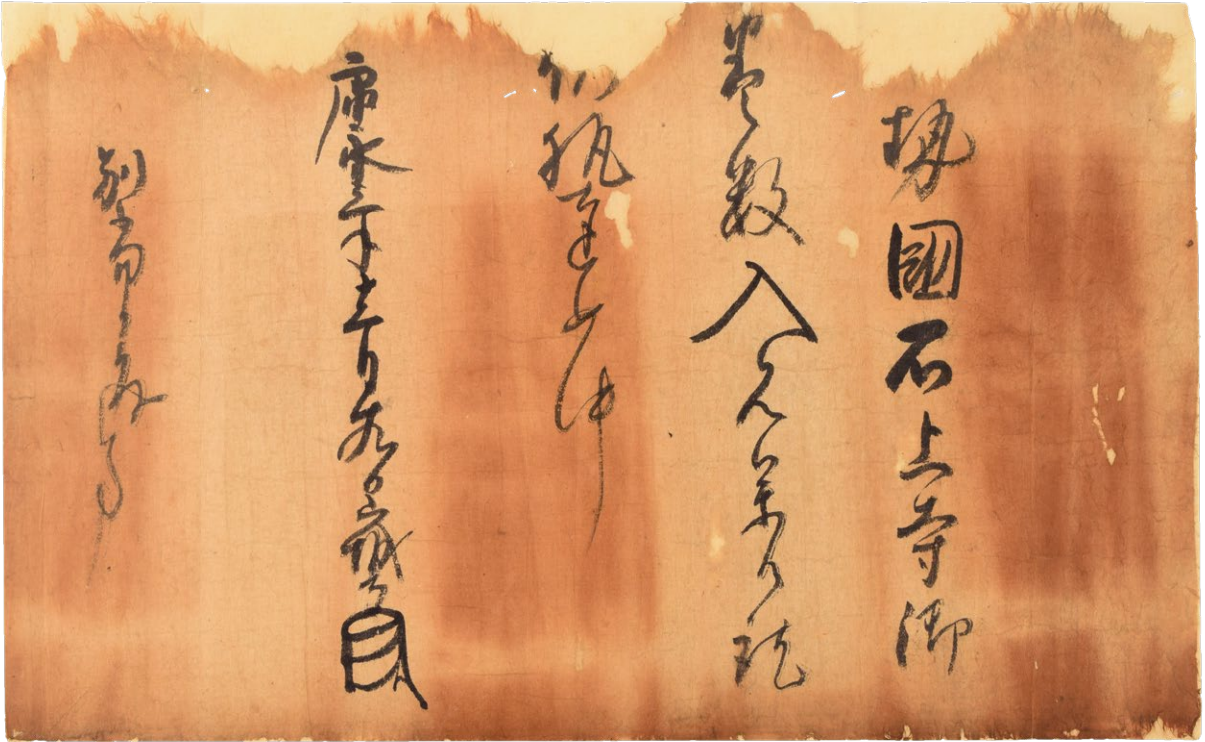 勢國石上寺御
巻数入見参候訖
仍執達如件
康永三年十二月廿九日
別当御房